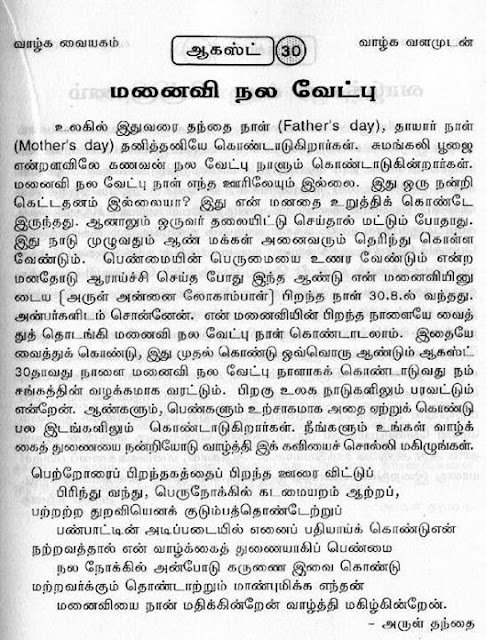 வாழ்க வையகம் ஆகஸ்ட் 30 வாழ்க வளமுடன்
மனைவி நல வேட்பு
உலகில் இதுவரை தந்தை நாள் (Father's day), தாயார் நாள்
(Mother's day) தனித்தனியே கொண்டாடுகிறார்கள். சுமங்கலி பூஜை
என்றளவிலே கணவன் நல வேட்பு நாளும் கொண்டாடுகின்றார்கள்.
மனைவி நல வேட்பு நாள் எந்த ஊரிலேயும் இல்லை. இது ஒரு நன்றி
கெட்டதனம் இல்லையா? இது என் மனதை உறுத்திக் கொண்டே
இருந்தது. ஆனாலும் ஒருவர் தலையிட்டு செய்தால் மட்டும் போதாது.
இது நாடு முழுவதும் ஆண் மக்கள் அனைவரும் தெரிந்து கொள்ள
வேண்டும். பெண்மையின் பெருமையை உணர வேண்டும் என்ற
மனதோடு ஆராய்ச்சி செய்த போது இந்த ஆண்டு என் மனைவியினு
டைய (அருள் அன்னை லோகாம்பாள்) பிறந்த நாள் 30.8.ல் வந்தது.
அன்பர்களிடம் சொன்னேன். என் மனைவியின் பிறந்த நாளையே வைத்
துத் தொடங்கி மனைவி நல வேட்பு நாள் கொண்டாடலாம். இதையே
வைத்துக் கொண்டு, இது முதல் கொண்டு ஒவ்வொரு ஆண்டும் ஆகஸ்ட்
30தாவது நாளை மனைவி நல வேட்பு நாளாகக் கொண்டாடுவது நம்
சங்கத்தின் வழக்கமாக வரட்டும். பிறகு உலக நாடுகளிலும் பரவட்டும்
என்றேன். ஆண்களும், பெண்களும் உற்சாகமாக அதை ஏற்றுக் கொண்டு
பல இடங்களிலும் கொண்டாடுகிறார்கள். நீங்களும் உங்கள் வாழ்க்
கைத் துணையை நன்றியோடு வாழ்த்தி இக் கவியைச் சொல்லி மகிழுங்கள்.
பெற்றோரைப் பிறந்தகத்தைப் பிறந்த ஊரை விட்டுப்
பிரிந்து வந்து, பெருநோக்கில் கடமையறம் ஆற்றப்,
பற்றற்ற துறவியெனக் குடும்பத்தொண்டேற்றுப்
பண்பாட்டின் அடிப்படையில் எனைப் பதியாய்க் கொண்டுஎன்
நற்றவத்தால் என் வாழ்க்கைத் துணையாகிப் பெண்மை
நல நோக்கில் அன்போடு கருணை இவை கொண்டு
மற்றவர்க்கும் தொண்டாற்றும் மாண்புமிக்க எந்தன்
மனைவியை நான் மதிக்கின்றேன் வாழ்த்தி மகிழ்கின்றேன்.
- அருள் தந்தை